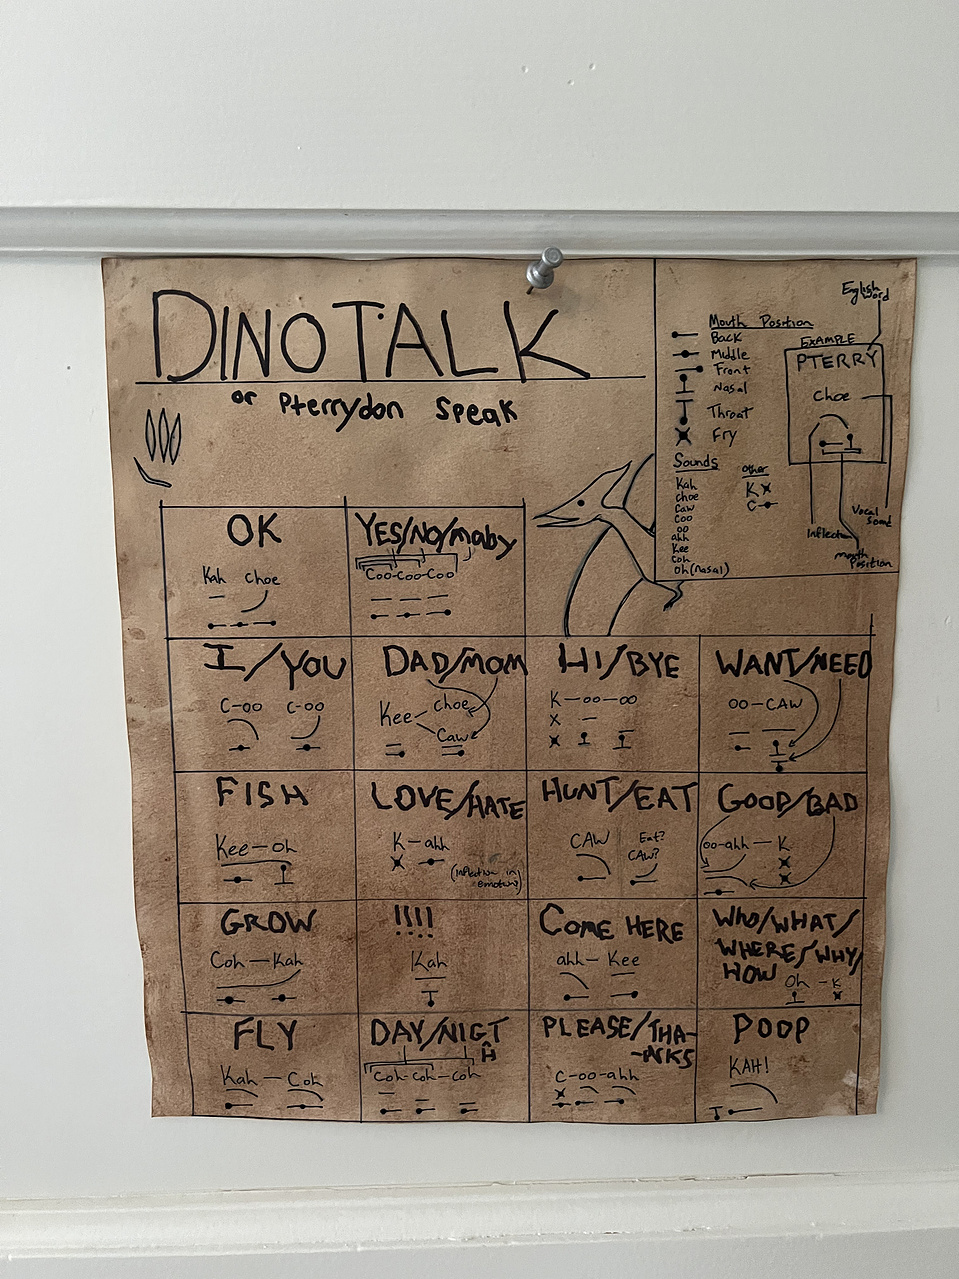 DINO TALK
or Pterrydon Speak
English word
Mouth Position
Back
Middle
Front
Nasal
Throat
Fry
EXAMPLE
PTERRY
choe
Inflection
Mouth Position
Vocal Sound
Sounds
Kah
choe
Caw
Coo
oo
ahh
Kee
Coh
oh (nasal)
Other
K
C
OK
Kah choe
YES/NO/maby
Coo-Coo-Coo
I/YOU
C-oo C-oo
DAD/MOM
Kee choe
Caw
HI/BYE
K-oo-oo
WANT/NEED
oo-CAW
FISH
Kee-oh
LOVE/HATE
K-ahh
(inflection in emotion)
HUNT/EAT
CAW
Eat?
CAW?
GOOD/BAD
oo-ahh-K
GROW
Coh-Kah
!!!!
Kah
COME HERE
ahh-Kee
WHO/WHAT/
WHERE/WHY/
HOW
Oh-K
FLY
Kah-Coh
DAY/NIGT
H
Coh-Coh-Coh
PLEASE/THA-
-NKS
C-oo-ahh
POOP
KAH!